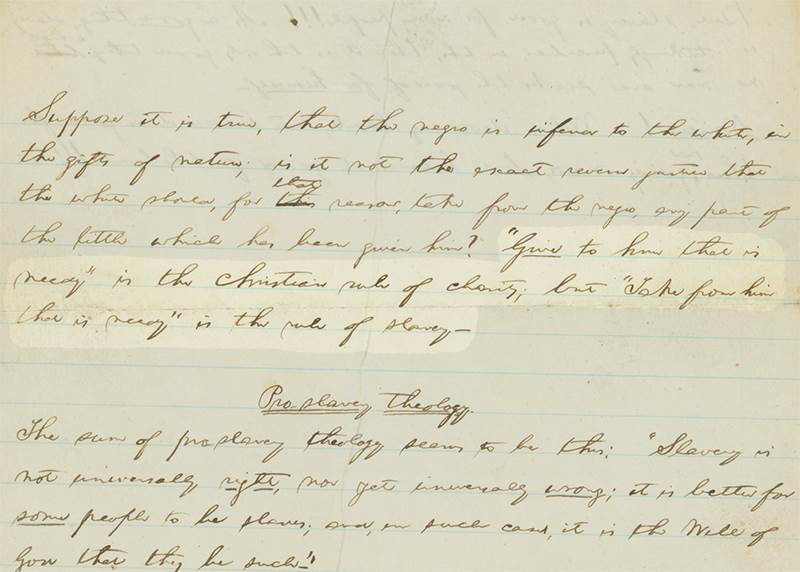 Suppose it is true, that the negro is inferior to the white, in
the gifts of nature; is it not the exact reverse justice that
that
the white should, for this reason, take from the negro, any part of
the little which has been given him? "Give to him that is
needy" is the christian rule of charity; but "Take from him
that is needy" is the rule of slavery—
Pro-slavery theology.
The sum of pro-slavery theology seems to be this: "Slavery is
not universally right, nor yet universally wrong; it is better for
some people to be slaves; and, in such cases, it is the Will of
God that they be such."